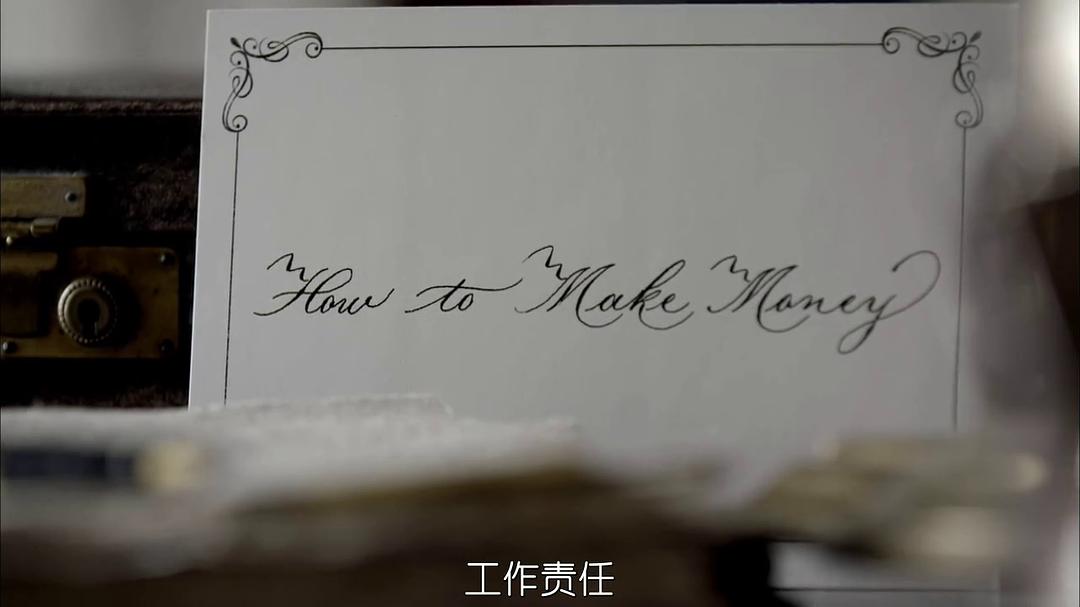 How to Make Money
工作责任